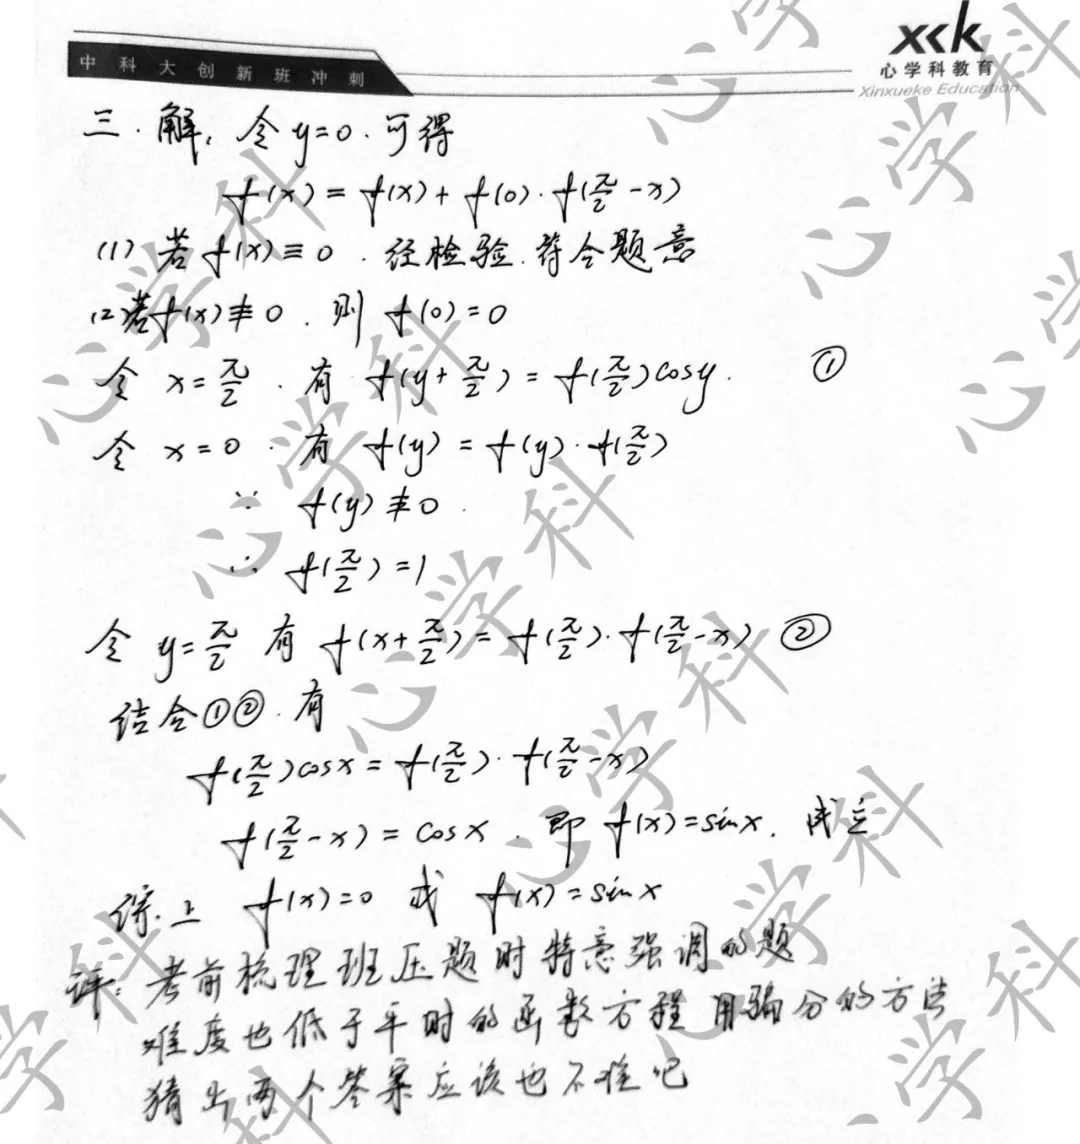 中科大创新班冲刺
xck
心学科教育
Xinxueke Education
三.解:令y=0.可得
f(x)=f(x)+f(0)·f(π/2-x)
(1)若f(x)≡0.经检验.符合题意
(2)若f(x)≢0.则f(0)=0
令x=π/2.有f(y+π/2)=f(π/2)cosy. ①
令x=0.有f(y)=f(y)·f(π/2)
∵f(y)≢0.
∴f(π/2)=1
令y=π/2有f(x+π/2)=f(π/2)·f(π/2-x) ②
结合①②.有
f(π/2)cosx=f(π/2)·f(π/2-x)
f(π/2-x)=cosx.即f(x)=sinx.成立
综上f(x)=0或f(x)=sinx
评:考前梳理班压题时特意强调的题
难度也低于平时的函数方程用骗分的方法
猜出两个答案应该也不难吧
心学科